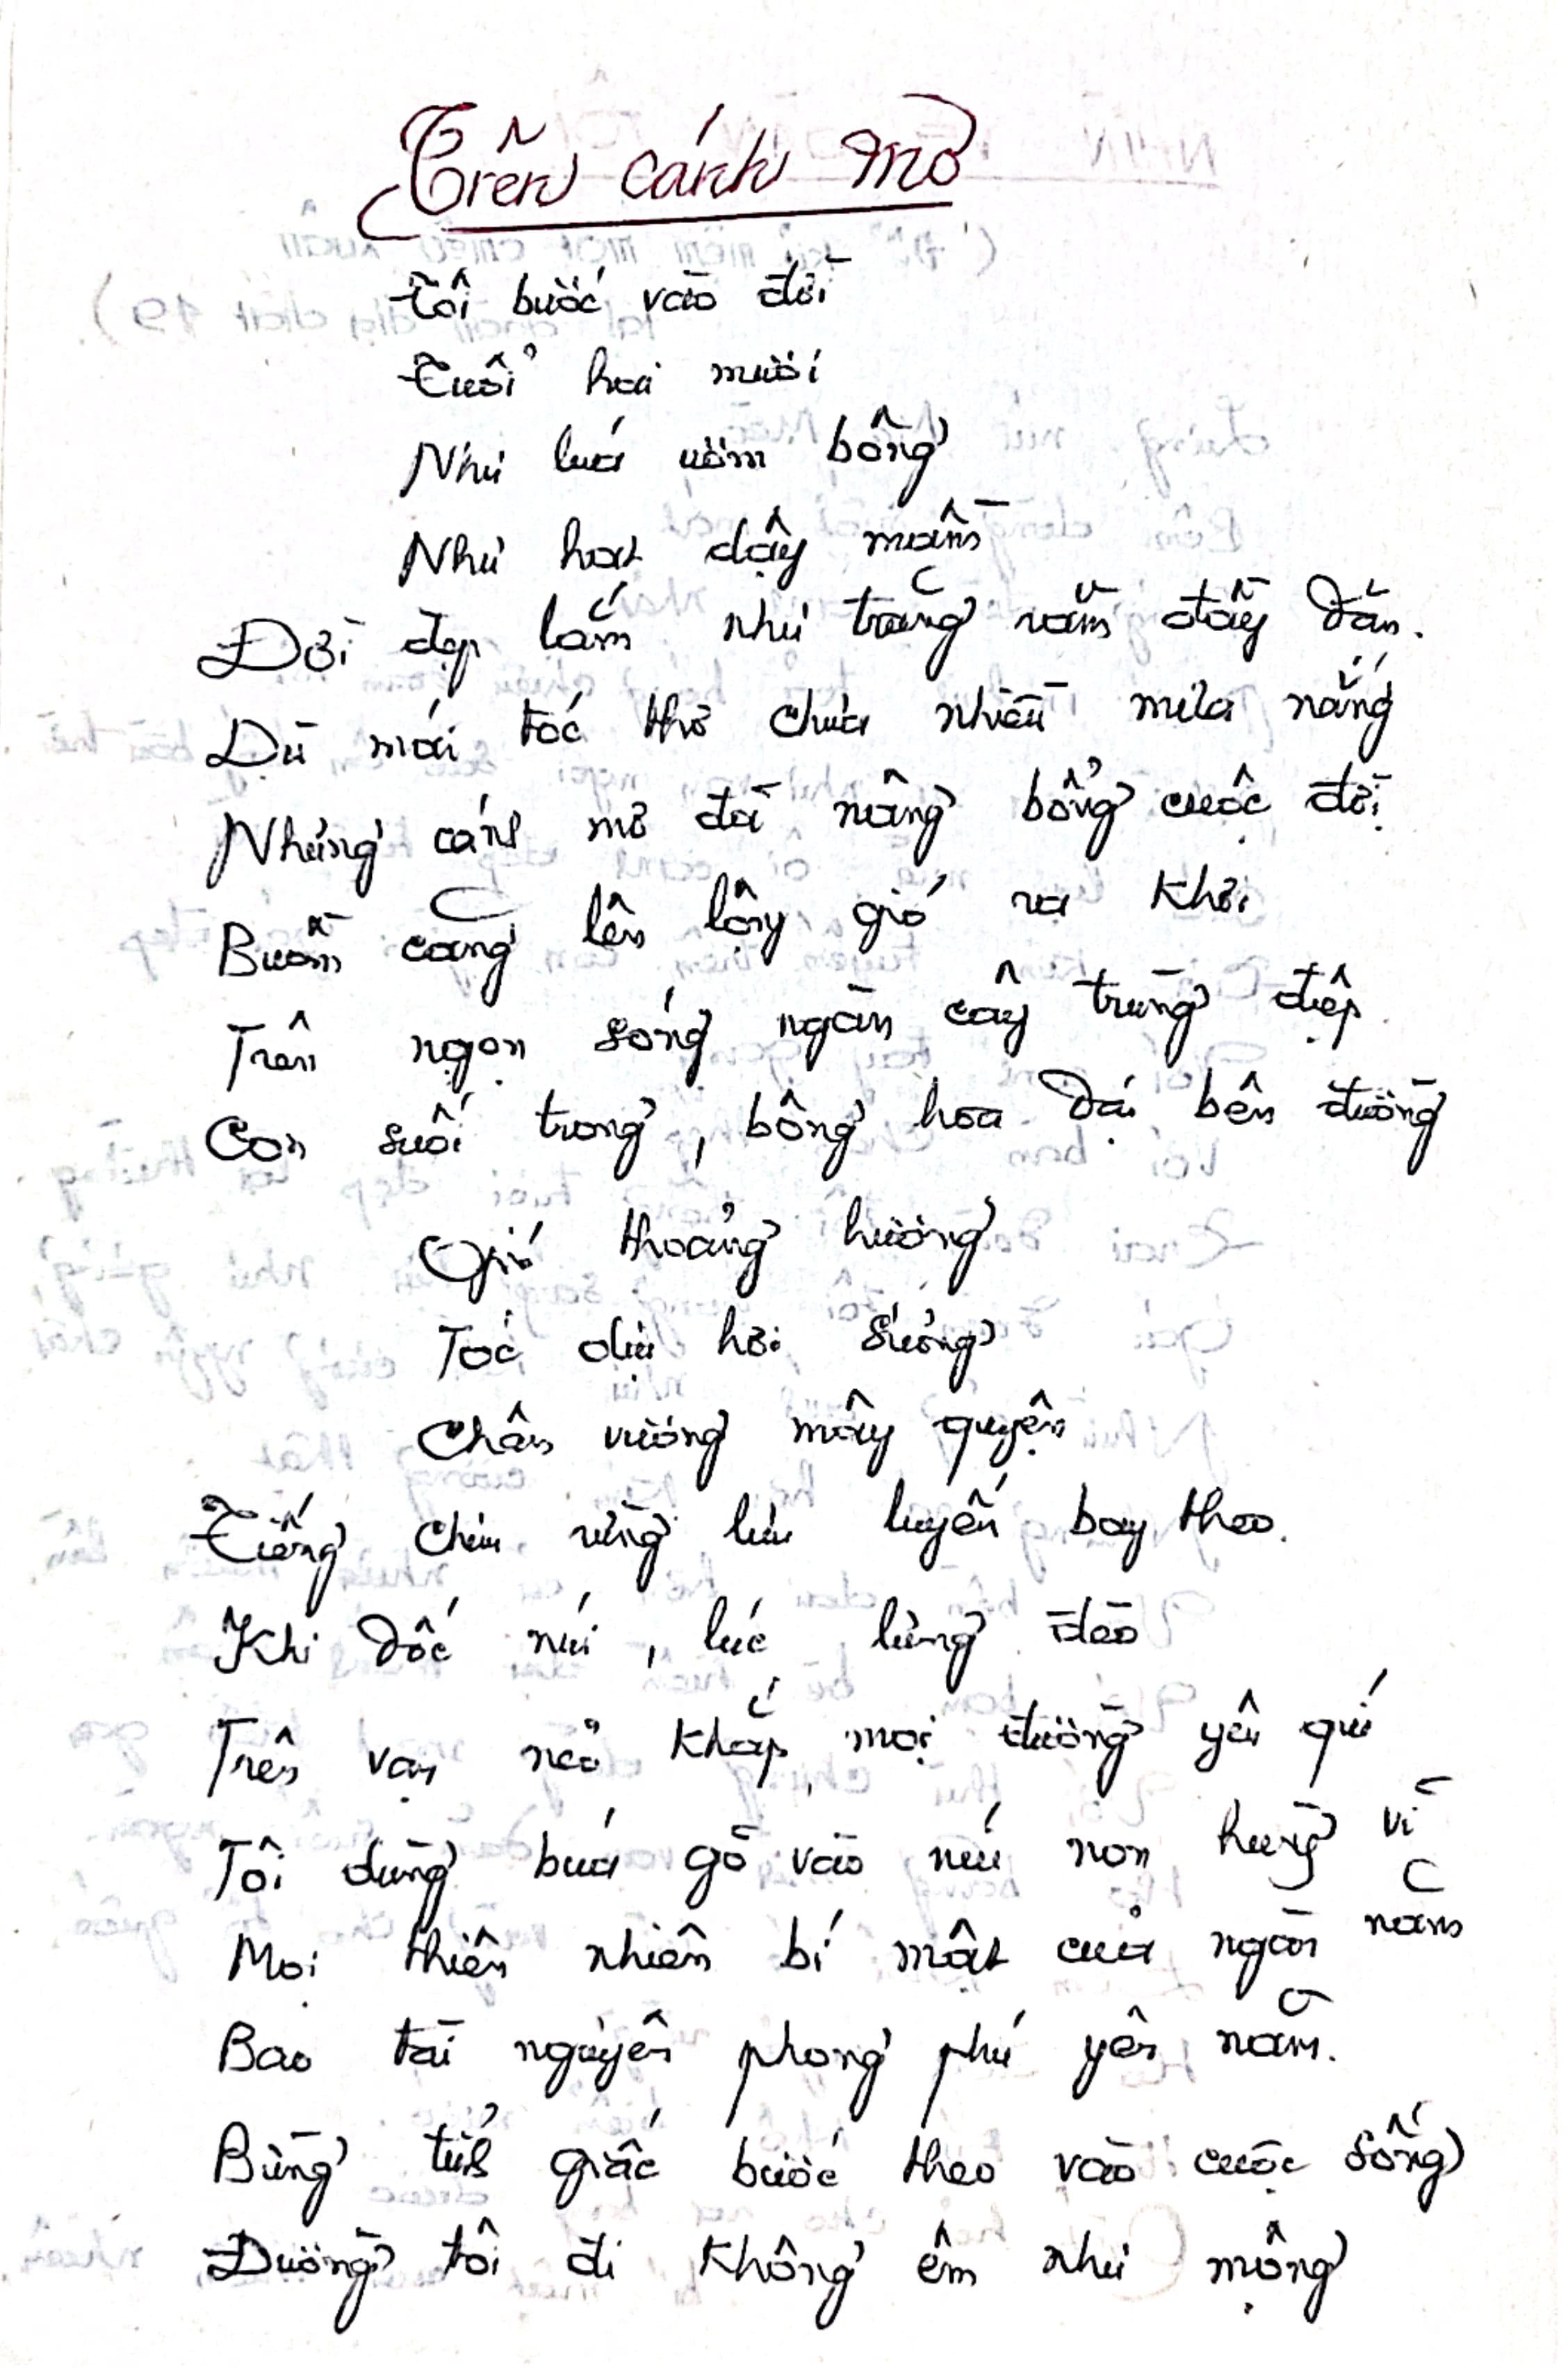 Trên cánh mơ
Tôi bước vào đời
Tuổi hai mươi
Như lúa ươm bông
Như hạt dậy mầm
Đời đẹp lắm như trăng rằm đầy dần.
Dù mái tóc thơ chưa nhiều mưa nắng
Những cánh mơ đã nâng bổng cuộc đời
Buồm căng lên lộng gió ra khơi
Trên ngọn sóng ngàn cây trùng điệp.
Con suối trong, bông hoa dại bên đường
Gió thoảng hương
Tóc dịu hơi sương
Chân vương mây quyện
Tiếng chim rừng lưu luyến bay theo.
Khi dốc núi, lúc lưng đèo
Trên vạn nẻo khắp mọi đường yêu quí
Tôi dùng búa gõ vào núi non hùng vĩ
Mọi thiên nhiên bí mật của ngàn năm
Bao tài nguyên phong phú yên nằm.
Bừng tỉnh giấc bước theo vào cuộc sống
Đường tôi đi không êm như mộng